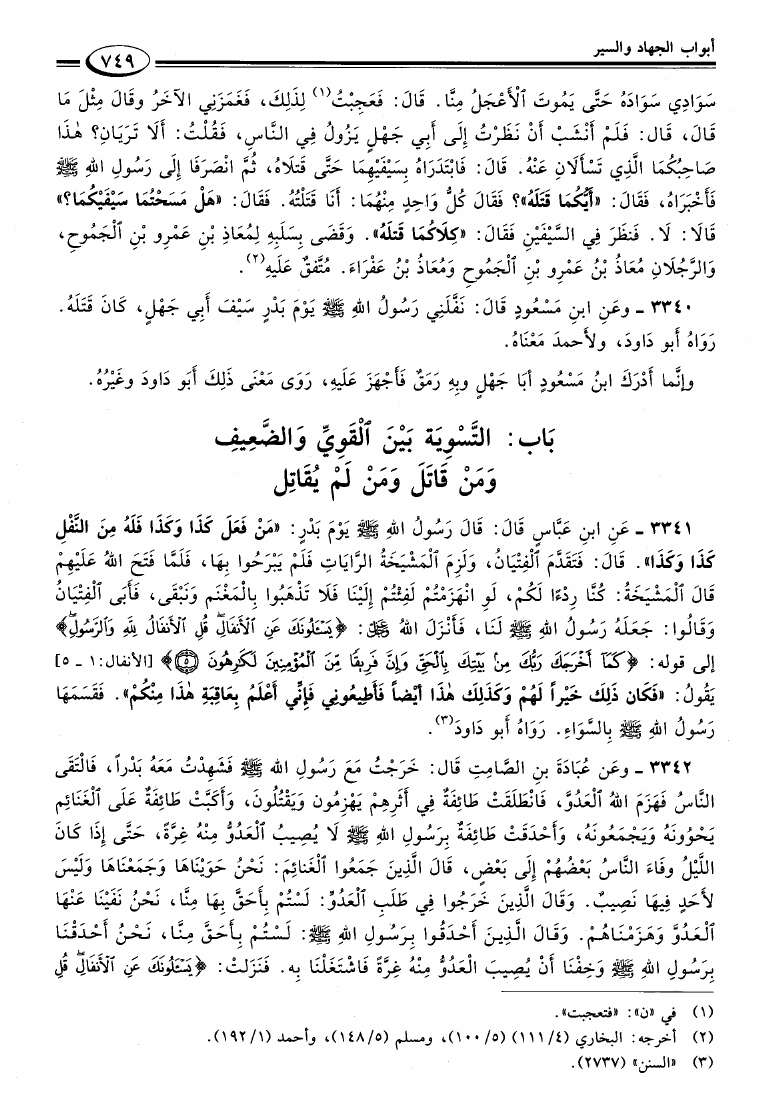 أبواب الجهاد والسير
٧٤٩
سَوَادِي سَوَادَهُ حَتَّى يَمُوتَ ٱلْأَعْجَلُ مِنَّا. قَالَ: فَعَجِبْتُ(١) لِذَلِكَ، فَغَمَزَنِي الآخَرُ وقَالَ مِثْلَ مَا
قَالَ، قال: فَلَمْ أَنْشَبْ أَنْ نَظَرْتُ إِلَى أَبِي جَهْلٍ يَزُولُ فِي النَّاسِ، فَقُلْتُ: أَلَا تَرَيَانِ؟ هٰذَا
صَاحِبُكُمَا الَّذِي تَسْأَلَانِ عَنْهُ. قَالَ: فَابْتَدَرَاهُ بِسَيْفَيْهِمَا حَتَّى قَتَلَاهُ، ثُمَّ انْصَرَفَا إِلَى رَسُولِ اللهِ ﷺ
فَأَخْبَرَاهُ، فَقَالَ: «أَيُّكُمَا قَتَلَهُ»؟ فَقَالَ كُلُّ وَاحِدٍ مِنْهُمَا: أَنَا قَتَلْتُهُ. فَقَالَ: «هَلْ مَسَحْتُمَا سَيْفَيْكُمَا؟»
قَالَا: لَا. فَنظَرَ فِي السَّيْفَيْنِ فَقَالَ: «كِلَاكُمَا قَتَلَهُ». وَقَضَى بِسَلَبِهِ لِمُعَاذِ بْنِ عَمْرِو بْنِ ٱلْجَمُوحِ،
وَالرَّجُلَانِ مُعَاذُ بْنُ عَمْرِو بْنِ ٱلْجَمُوحِ وَمُعَاذُ بْنُ عَفْرَاءَ. مُتَّفقٌ عَلَيهِ(٢).
٣٣٤٠ ـ وعَنِ ابنِ مَسْعُودٍ قَالَ: نَفَّلَنِي رَسُولُ اللهِ ﷺ يَوْمَ بَدْرٍ سَيْفَ أَبِي جَهْلٍ، كَانَ قَتَلَهُ.
رَوَاهُ أبو دَاودَ، ولأحمدَ مَعْنَاهُ.
وإنَّما أَدْرَكَ ابنُ مَسْعُودٍ أبَا جَهْلٍ وبِهِ رَمَقٌ فَأَجْهَزَ عَلَيهِ، رَوَى مَعْنَى ذَلِكَ أَبَو دَاودَ وغَيْرُهُ.
بَاب: التَّسْوِيَة بَيْنَ ٱلْقَوِيِّ وَالضَّعِيفِ
وَمَنْ قَاتَلَ وَمَنْ لَمْ يُقَاتِل
٣٣٤١ ـ عَنِ ابنِ عَبَّاسٍ قَالَ: قَالَ رَسُولُ اللهِ ﷺ يَوْمَ بَدْرٍ: «مَنْ فَعَلَ كَذَا وَكَذَا فَلَهُ مِنَ النَّفْلِ
كَذَا وَكَذَا». قَالَ: فَتَقَدَّمَ ٱلْفِتْيَانُ، وَلَزِمَ ٱلْمَشْيَخَةُ الرَّايَاتِ فَلَمْ يَبْرَحُوا بِهَا، فَلَمَّا فَتَحَ اللهُ عَلَيْهِمْ
قَالَ ٱلْمَشْيَخَةُ: كُنَّا رِدْءًا لَكُمْ، لَوِ انْهَزَمْتُمْ لَفِئْتُمْ إِلَيْنَا فَلَا تَذْهَبُوا بِالْمَغْنَمِ وَنَبْقَى، فَأَبَى ٱلْفِتْيَانُ
وَقَالُوا: جَعَلَهُ رَسُولُ اللهِ ﷺ لَنَا، فَأَنْزَلَ اللهُ عز وجل: ﴿يَسْـَٔلُونَكَ عَنِ ٱلْأَنفَالِۖ قُلِ ٱلْأَنفَالُ لِلَّهِ وَٱلرَّسُولِۖ﴾
إلى قوله: ﴿كَمَآ أَخْرَجَكَ رَبُّكَ مِنۢ بَيْتِكَ بِٱلْحَقِّ وَإِنَّ فَرِيقًا مِّنَ ٱلْمُؤْمِنِينَ لَكَٰرِهُونَ ٥﴾ [الأنفال: ١ ـ ٥]
يَقُولُ: «فَكَان ذَلِكَ خَيْراً لَهُمْ وَكَذَلِكَ هٰذَا أَيْضاً فَأَطِيعُونِي فَإِنِّي أَعْلَمُ بِعَاقِبَةِ هٰذَا مِنْكُمْ». فَقَسَمَهَا
رَسُولُ اللهِ ﷺ بِالسَّوَاءِ. رَوَاهُ أبو دَاودَ(٣).
٣٣٤٢ ـ وعَن عُبَادَةَ بنِ الصَّامِتِ قَالَ: خَرَجْتُ مَعَ رَسُولِ اللهِ ﷺ فَشَهِدْتُ مَعَهُ بَدْراً، فَالْتَقَى
النَّاسُ فَهَزَمَ اللهُ ٱلْعَدُوَّ، فَانْطَلَقَتْ طَائِفَةٌ فِي أَثَرِهِمْ يَهْزِمُونَ وَيَقْتُلُونَ، وَأَكَبَّتْ طَائِفَةٌ عَلَى ٱلْغَنَائِمِ
يَحْوُونَهُ وَيَجْمَعُونَهُ، وَأَحْدَقَتْ طَائِفَةٌ بِرَسُولِ اللهِ ﷺ لَا يُصِيبُ ٱلْعَدُوُّ مِنْهُ غِرَّةً، حَتَّى إِذَا كَانَ
اللَّيْلُ وفَاءَ النَّاسُ بَعْضُهُمْ إِلَى بَعْضٍ، قَالَ الَّذِينَ جَمَعُوا ٱلْغَنَائِمَ: نَحْنُ حَوَيْنَاهَا وَجَمَعْنَاهَا وَلَيْسَ
لأَحَدٍ فِيهَا نَصِيبٌ. وَقَالَ الَّذِينَ خَرَجُوا فِي طَلَبِ ٱلْعَدُوِّ: لَسْتُمْ بِأَحَقَّ بِهَا مِنَّا، نَحْنُ نَفَيْنَا عَنْهَا
ٱلْعَدُوَّ وَهَزَمْنَاهُمْ. وَقَالَ الَّذِينَ أَحْدَقُوا بِرَسُولِ اللهِ ﷺ: لَسْتُمْ بِأَحَقَّ مِنَّا، نَحْنُ أَحْدَقْنَا
بِرَسُولِ اللهِ ﷺ وَخِفْنَا أَنْ يُصِيبَ الْعَدُوُّ مِنْهُ غِرَّةً فَاشْتَغَلْنَا بِه. فَنَزَلَتْ: ﴿يَسْـَٔلُونَكَ عَنِ ٱلْأَنفَالِۖ قُلِ
(١) في «ن»: «فتعجبت».
(٢) أخرجه: البخاري (٤/ ١١١) (٥/ ١٠٠)، ومسلم (٥/ ١٤٨)، وأحمد (١/ ١٩٢).
(٣) «السنن» (٢٧٣٧).